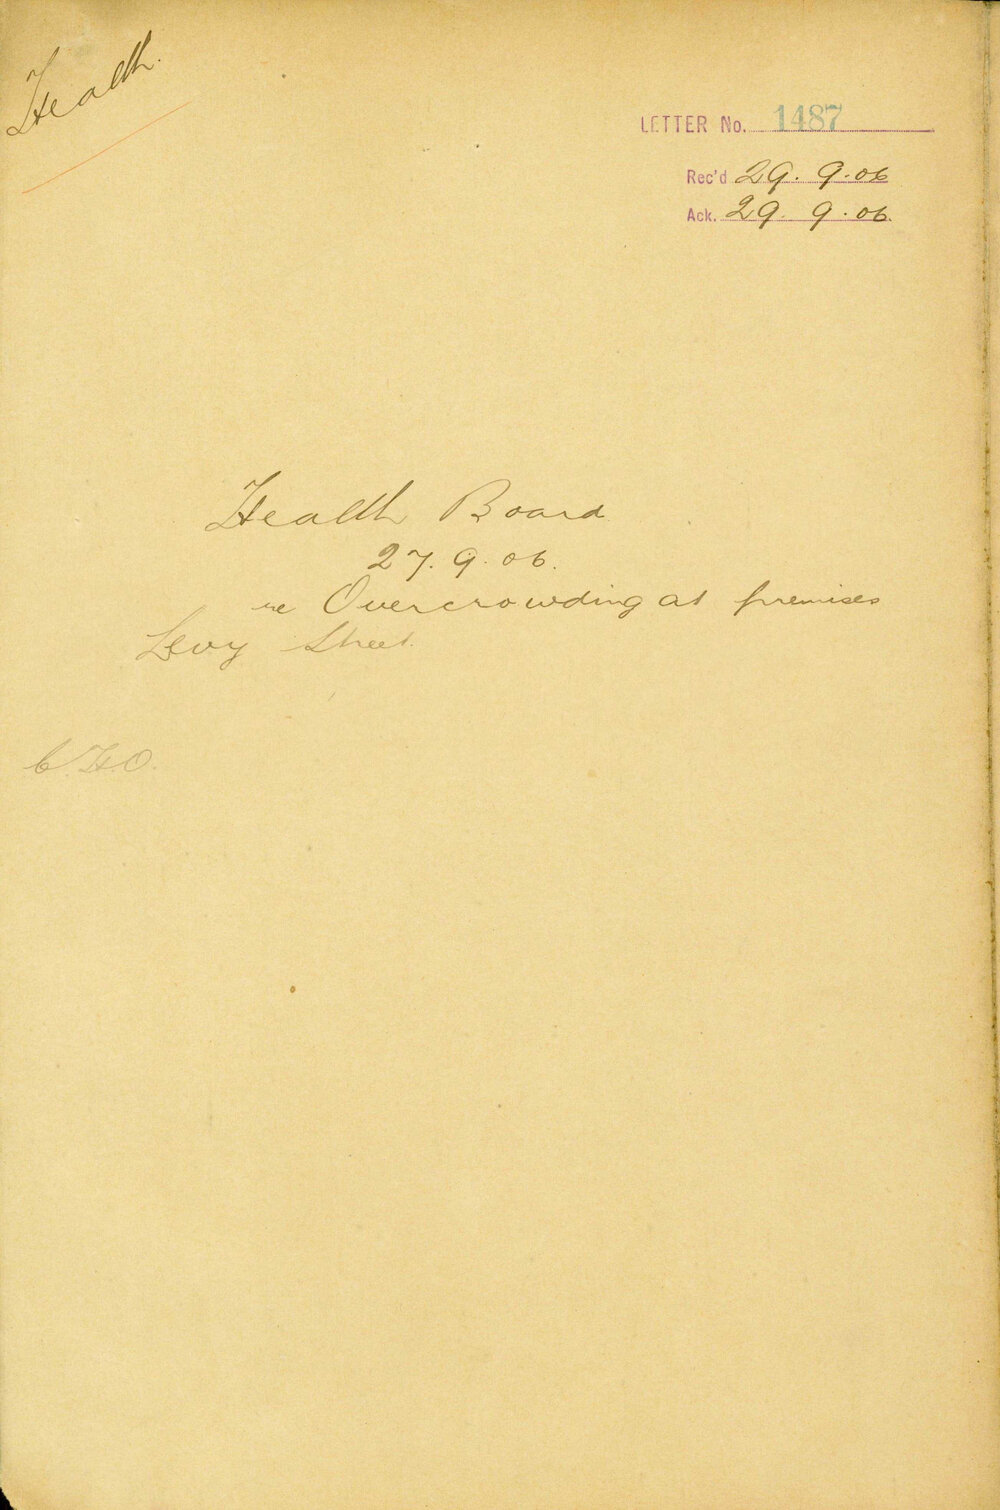 Health.
LETTER No. 1487
Rec'd 29. 9. 06
Ack. 29. 9. 06.
Health Board
27. 9. 06.
re Overcrowding at premises
Levy Street.
C.H.O.